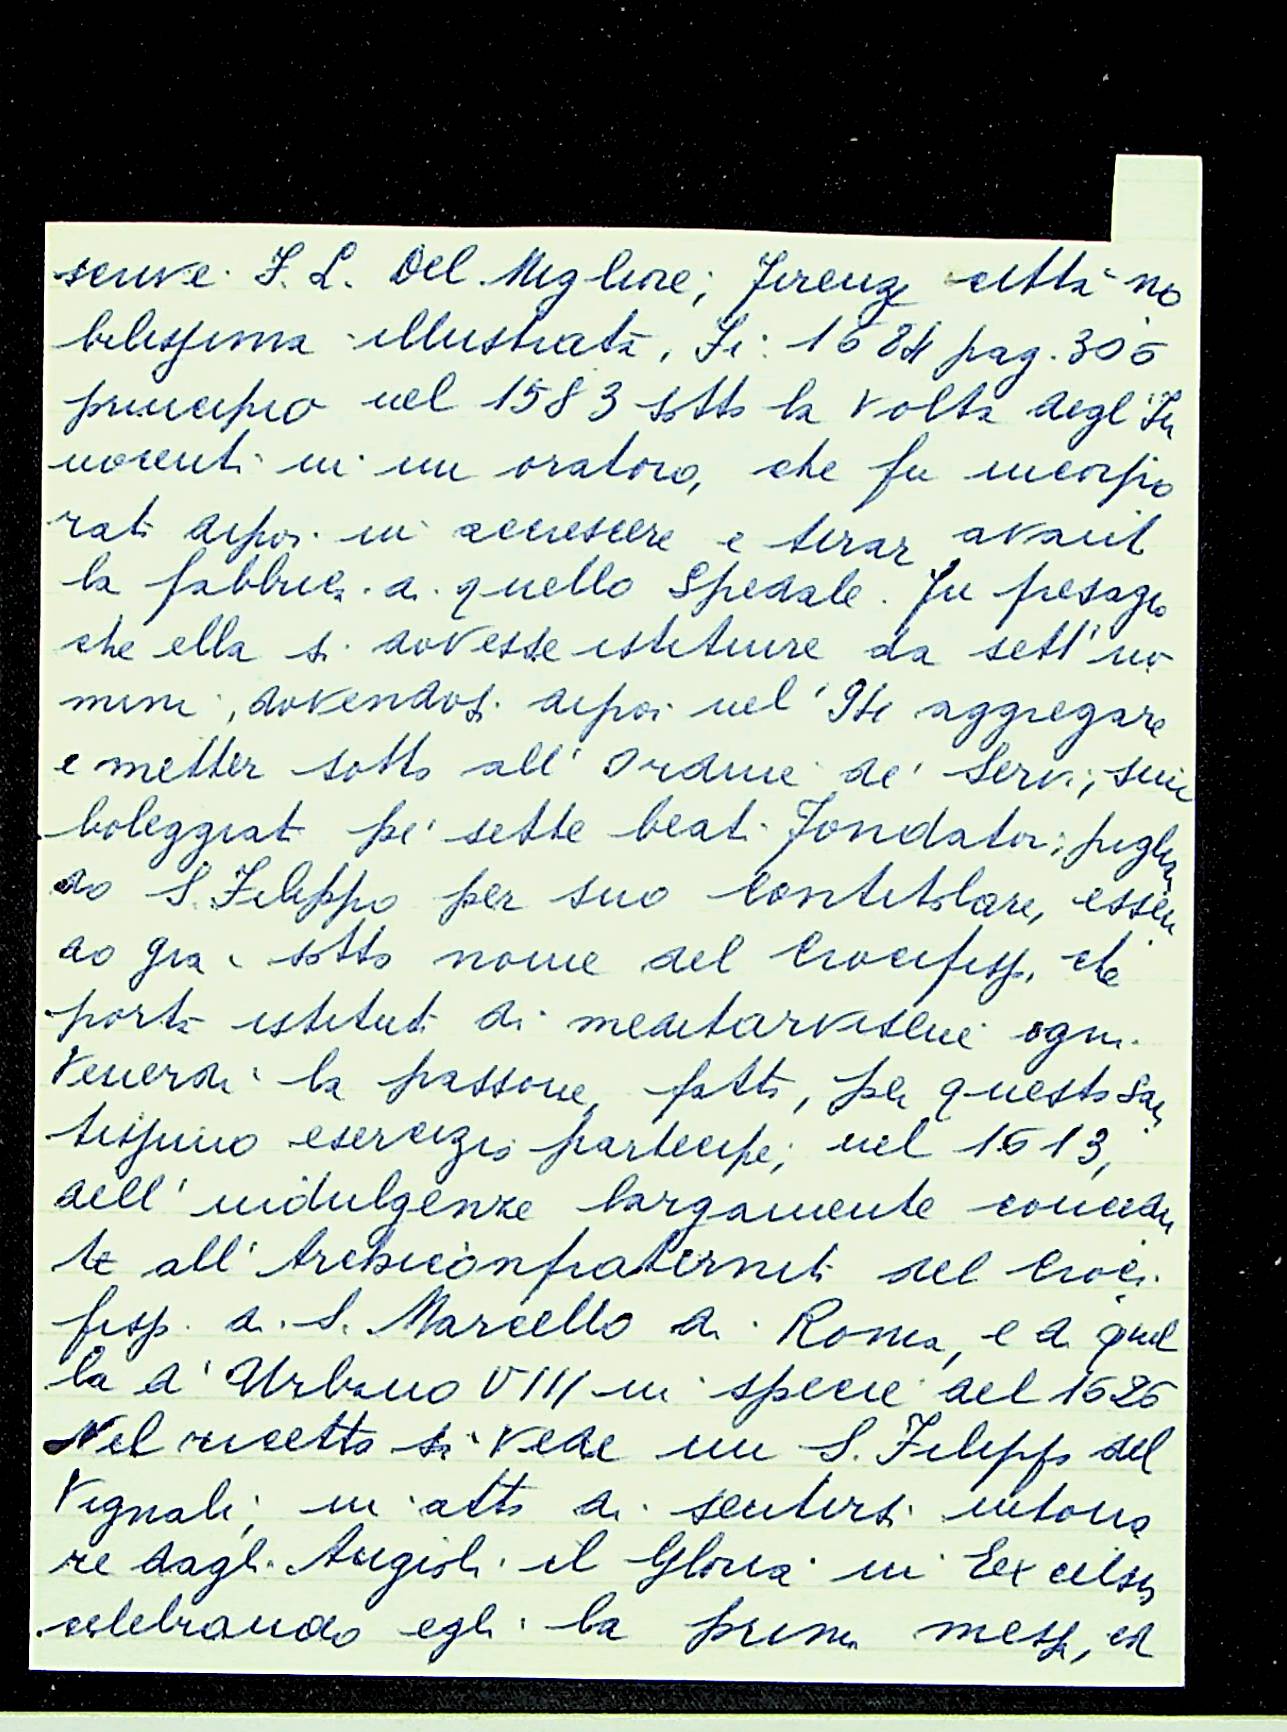 scrive F. L. Del Migliore; Firenze città no
bilissima illustrata, Fi: 1684 pag. 306
principio nel 1583 sotto la volta degl'In
nocenti in un oratorio, che fu incorpo
rato dipoi in accrescere e tirar avanti
la fabbrica di quello Spedale. Fu presagio
che ella si dovesse istituire da sett'uo
mini, dovendosi dipoi nel '94 aggregare
e metter sotto all'Ordine de' Servi, sim
boleggiati pe' sette beati Fondatori; piglian
do S. Filippo per suo Contitolare, essen
do già sotto nome del Crocifisso, che
portò istituto di meditarvisene ogni
Venerdì la passione, fatto, per questo San
tissimo esercizio partecipe, nel 1613,
dell'indulgenze largamente concedu
te all'Arciconfraternità del Croci
fisso di S. Marcello di Roma, e di quel
la d'Urbano VIII in specie del 1626
Nel ricetto si vede un S. Filippo del
Vignali, in atto di sentirsi intona
re dagli Angioli il Gloria in Excelsis
celebrando egli la prima messa, ed